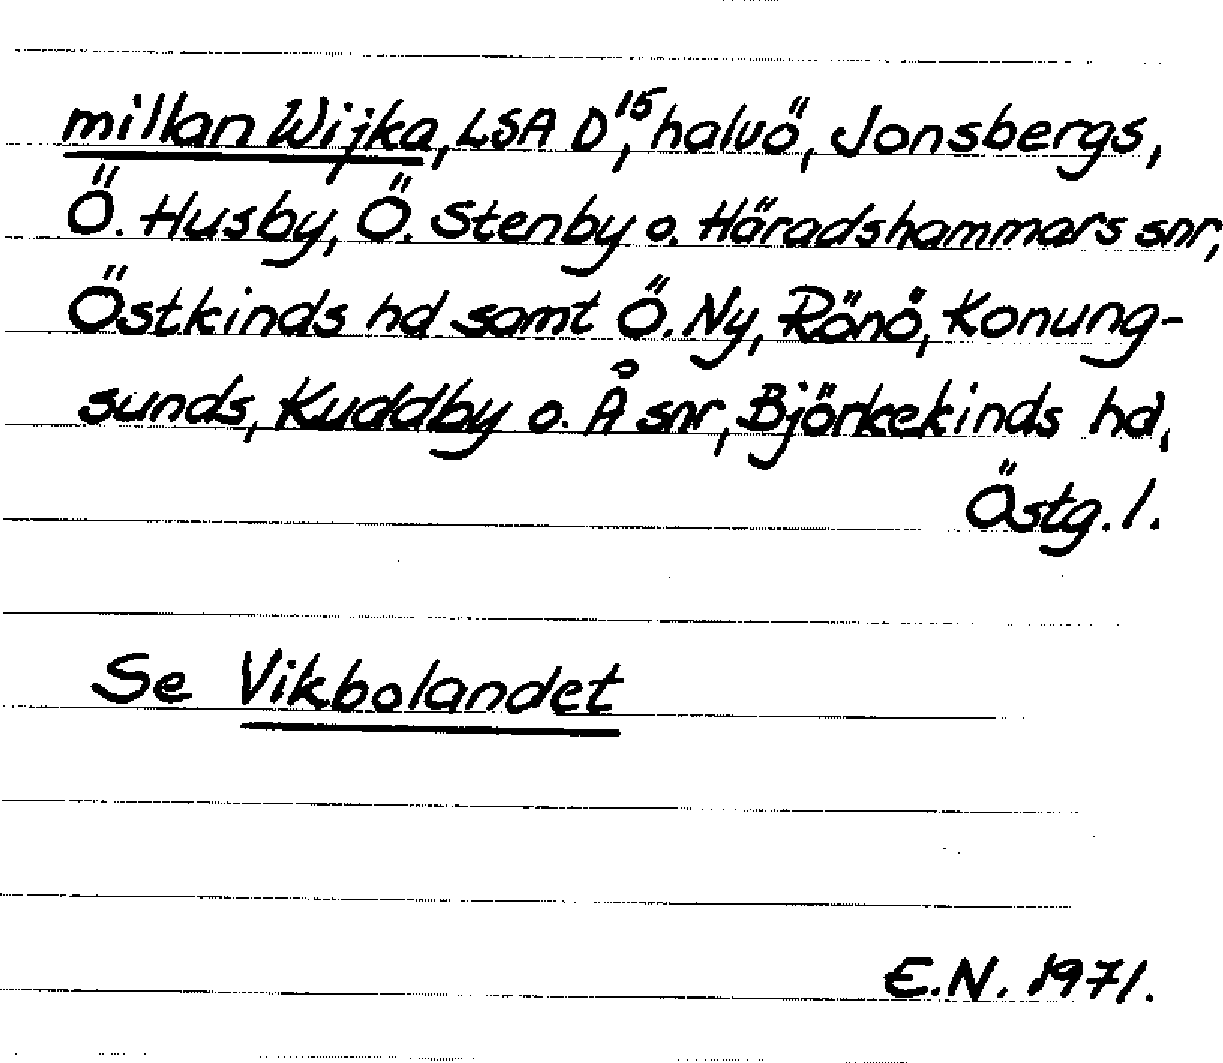 millan Wijka, LSA D¹⁵, halvö, Jonsbergs,
Ö. Husby, Ö. Stenby o. Häradshammars snr,
Östkinds hd samt Ö. Ny, Rönö, Konung-
sunds, Kuddby o. Å snr, Björkekinds hd,
Östg. l.
Se Vikbolandet
E.N. 1971.